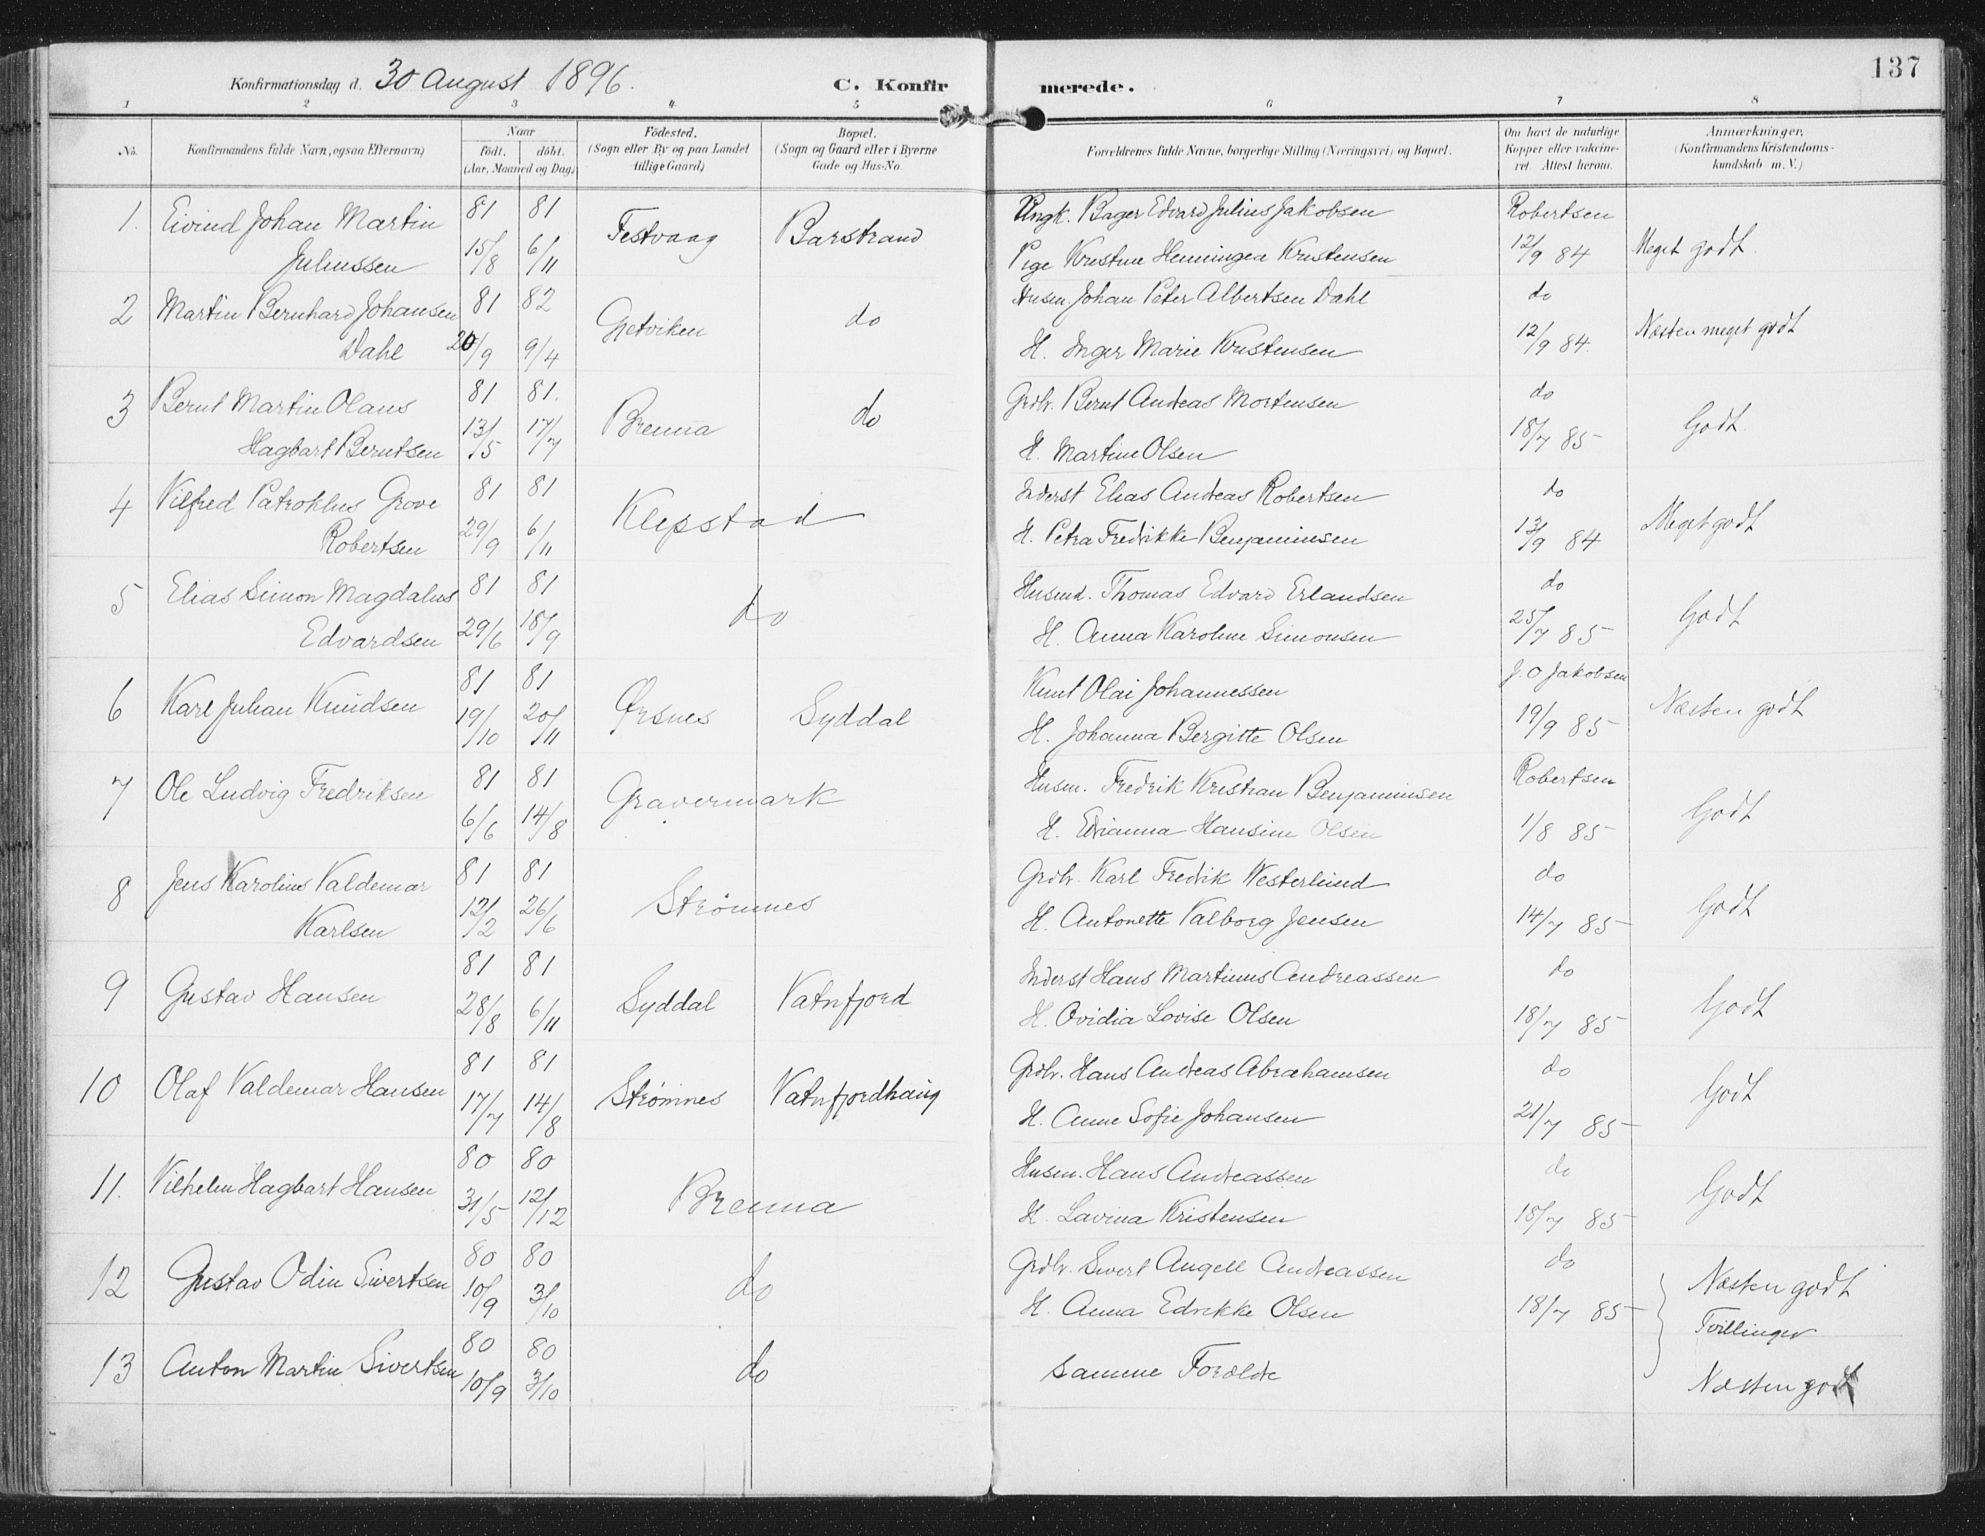 137
Konfirmationsdag d. 30 August 1896. C. Konfirmerede.
1 2 3 4 5 6 7 8
No. Konfirmandens fulde Navn, ogsaa Efternavn) Naar Födt. döbt. (Aar, Maaned og Dag) Födested. (Sogn eller By og paa Landet tillige Gaard) Bopæl. (Sogn og Gaard eller i Byerne Gade og Hus-No. Forældrenes fulde Navne, borgerlige Stilling (Næringsvei) og Bopæl. Om havt de naturlige Kopper eller vakcineret Attest herom. Anmærkninger. (Konfirmandens Kristendomskundskab m. V.)
1. Eivind Johan Martin 81 81 Festvaag Barstrand Ungk. Bager Edvard Julius Jakobsen Robertsen
Juliussen 15/8 6/11 Pige Kristine Henningea Kristensen 12/9 84 Meget godt.
2 Martin Bernhard Johansen 81 82 Gjetviken do Husm. Johan Peter Albertsen Dahl do
Dahl 20/9 9/4 H. Inger Marie Kristensen 12/9 84. Næsten meget godt
3 Bernt Martin Olaus 81 81. Brenna do Grdbr. Bernt Andreas Mortensen do
Hagbart Berntsen 13/5 17/7 H. Martine Olsen 18/7 85 Godt.
4 Vilfred Patroklus Grove 81 81 Klepstad Inderst Elias Andreas Robertsen do
Robertsen 29/9 6/11 H. Petra Fredrikke Benjaminsen 13/9 84 Meget godt
5 Elias Simon Magdalus 81 81 do Husmd. Thomas Edvard Erlandsen do
Edvardsen 29/6 18/9 H. Anna Karoline Simonsen 25/7 85 Godt
6 Karl Julian Knudsen 81 81 Ørsnes Syddal Knut Olai Johannessen J. O Jakobsen
19/10 20/11 H. Johanna Bergitte Olsen 19/9 85 Næsten godt
7 Ole Ludvig Fredriksen 81 81 Gravermark Husm. Fredrik Kristian Benjaminsen Robertsen
6/6 14/8 H. Edianna Hansine Olsen 1/8 85 Godt
8 Jens Karolius Valdemar 81 81 Strømnes Grdbr. Karl Fredrik Westerlund do
Karlsen 12/2 26/6 H. Antonette Valborg Jensen 14/7 85 Godt
9 Gustav Hansen 81 81 Syddal Vatnfjord Inderst Hans Martinus Andreassen do
28/8 6/11 H. Ovidia Lovise Olsen 18/7 85 Godt
10 Olaf Valdemar Hansen 81 81 Strømnes Vatnfjordhaug Grdbr. Hans Andreas Abrahamsen do
17/7 14/8 H. Anne Sofie Johansen 21/7 85 Godt
11. Vilhelm Hagbart Hansen 80 80 Brenna Husm. Hans Andreassen do
31/5 12/12 H. Lavina Kristensen 18/7 85 Godt
12 Gustav Odin Sivertsen 80 80 do Grdbr. Sivert Angell Andreassen do
10/9 3/10 H. Anna Edrikke Olsen 18/7 85 Næsten godt
Tvillinger
13 Anton Martin Sivertsen 80 80 do samme Forældre
10/9 3/10 Næsten godt